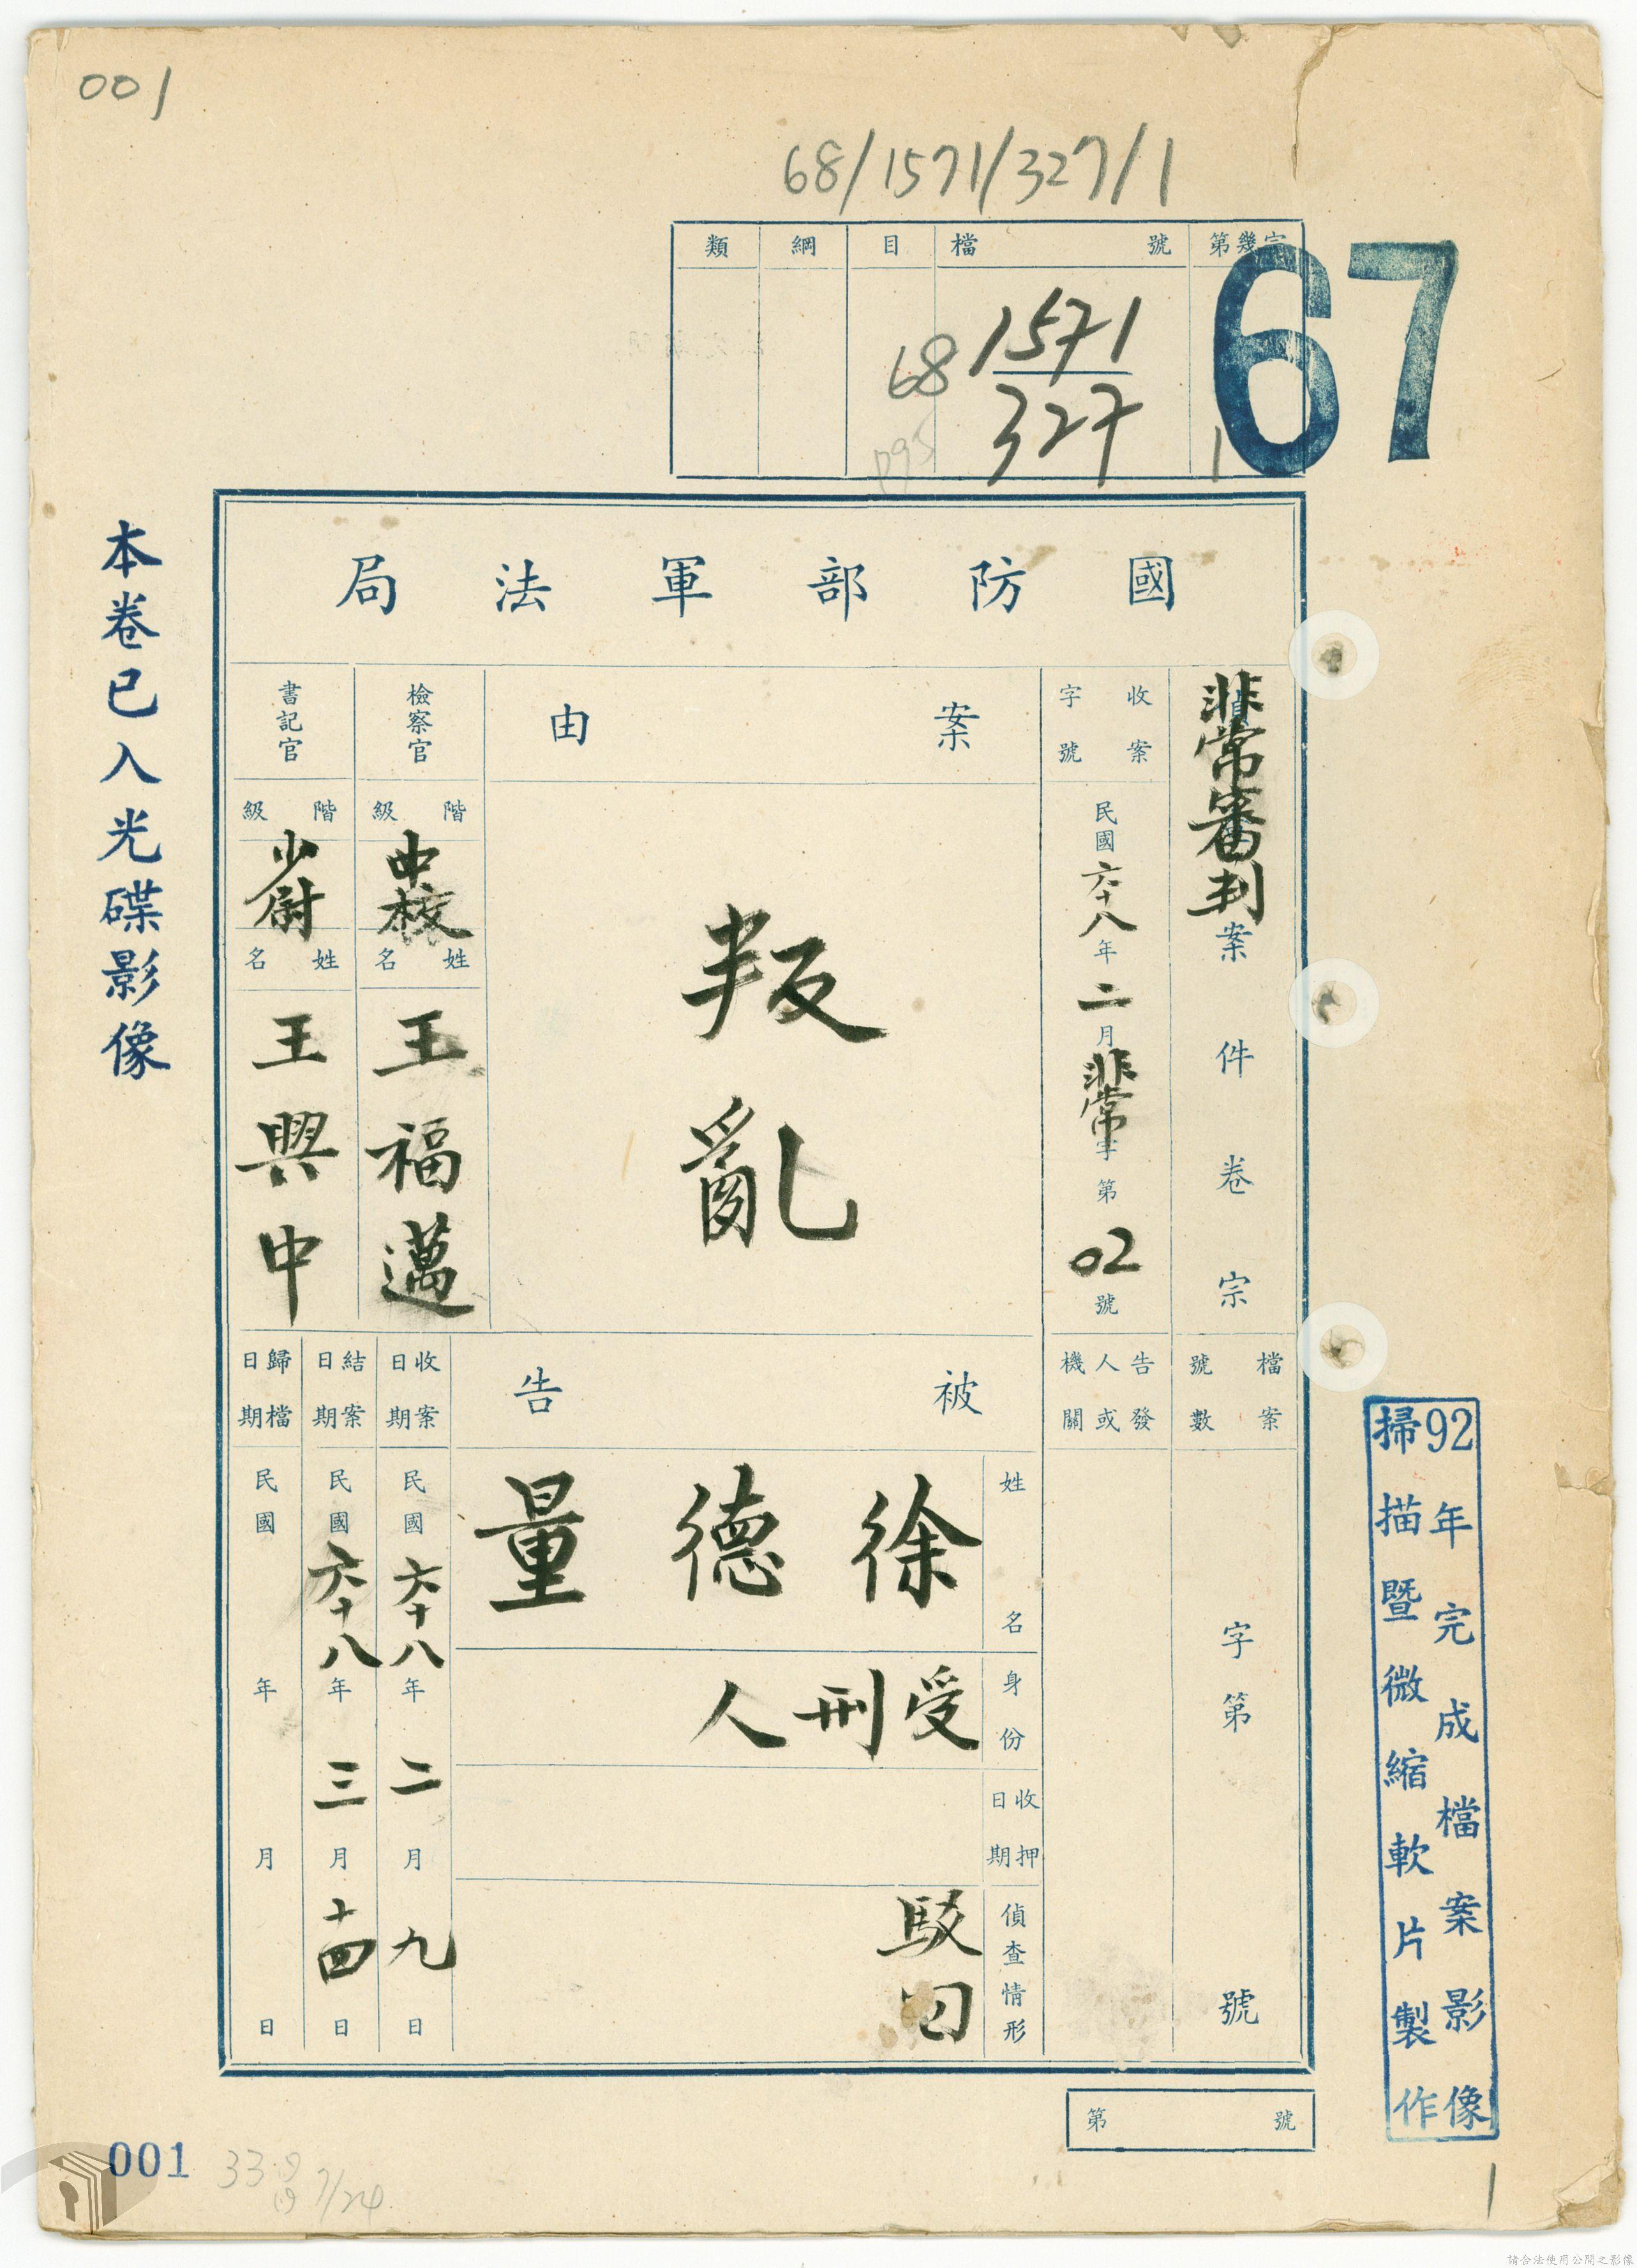 001
68/1571/327/1
類 綱 目 檔號 第幾宗
68
1571
327
1
67
國防部軍法局
非常審判案件卷宗
檔案號數
字第 號
收案字號
民國六十八年二月非常字第02號
告發人或機關
案由
叛亂
檢察官
階級
中校
姓名
王福邁
書記官
階級
少尉
姓名
王興中
被告
姓名
徐德量
身份
受刑人
收押日期
偵查情形
駁回
收案日期
民國六十八年二月九日
結案日期
民國六十八年三月十四日
歸檔日期
民國 年 月 日
第 號
本卷已入光碟影像
92年完成檔案影像
掃描暨微縮軟片製作
001
7/24
1
請合法使用公開之影像